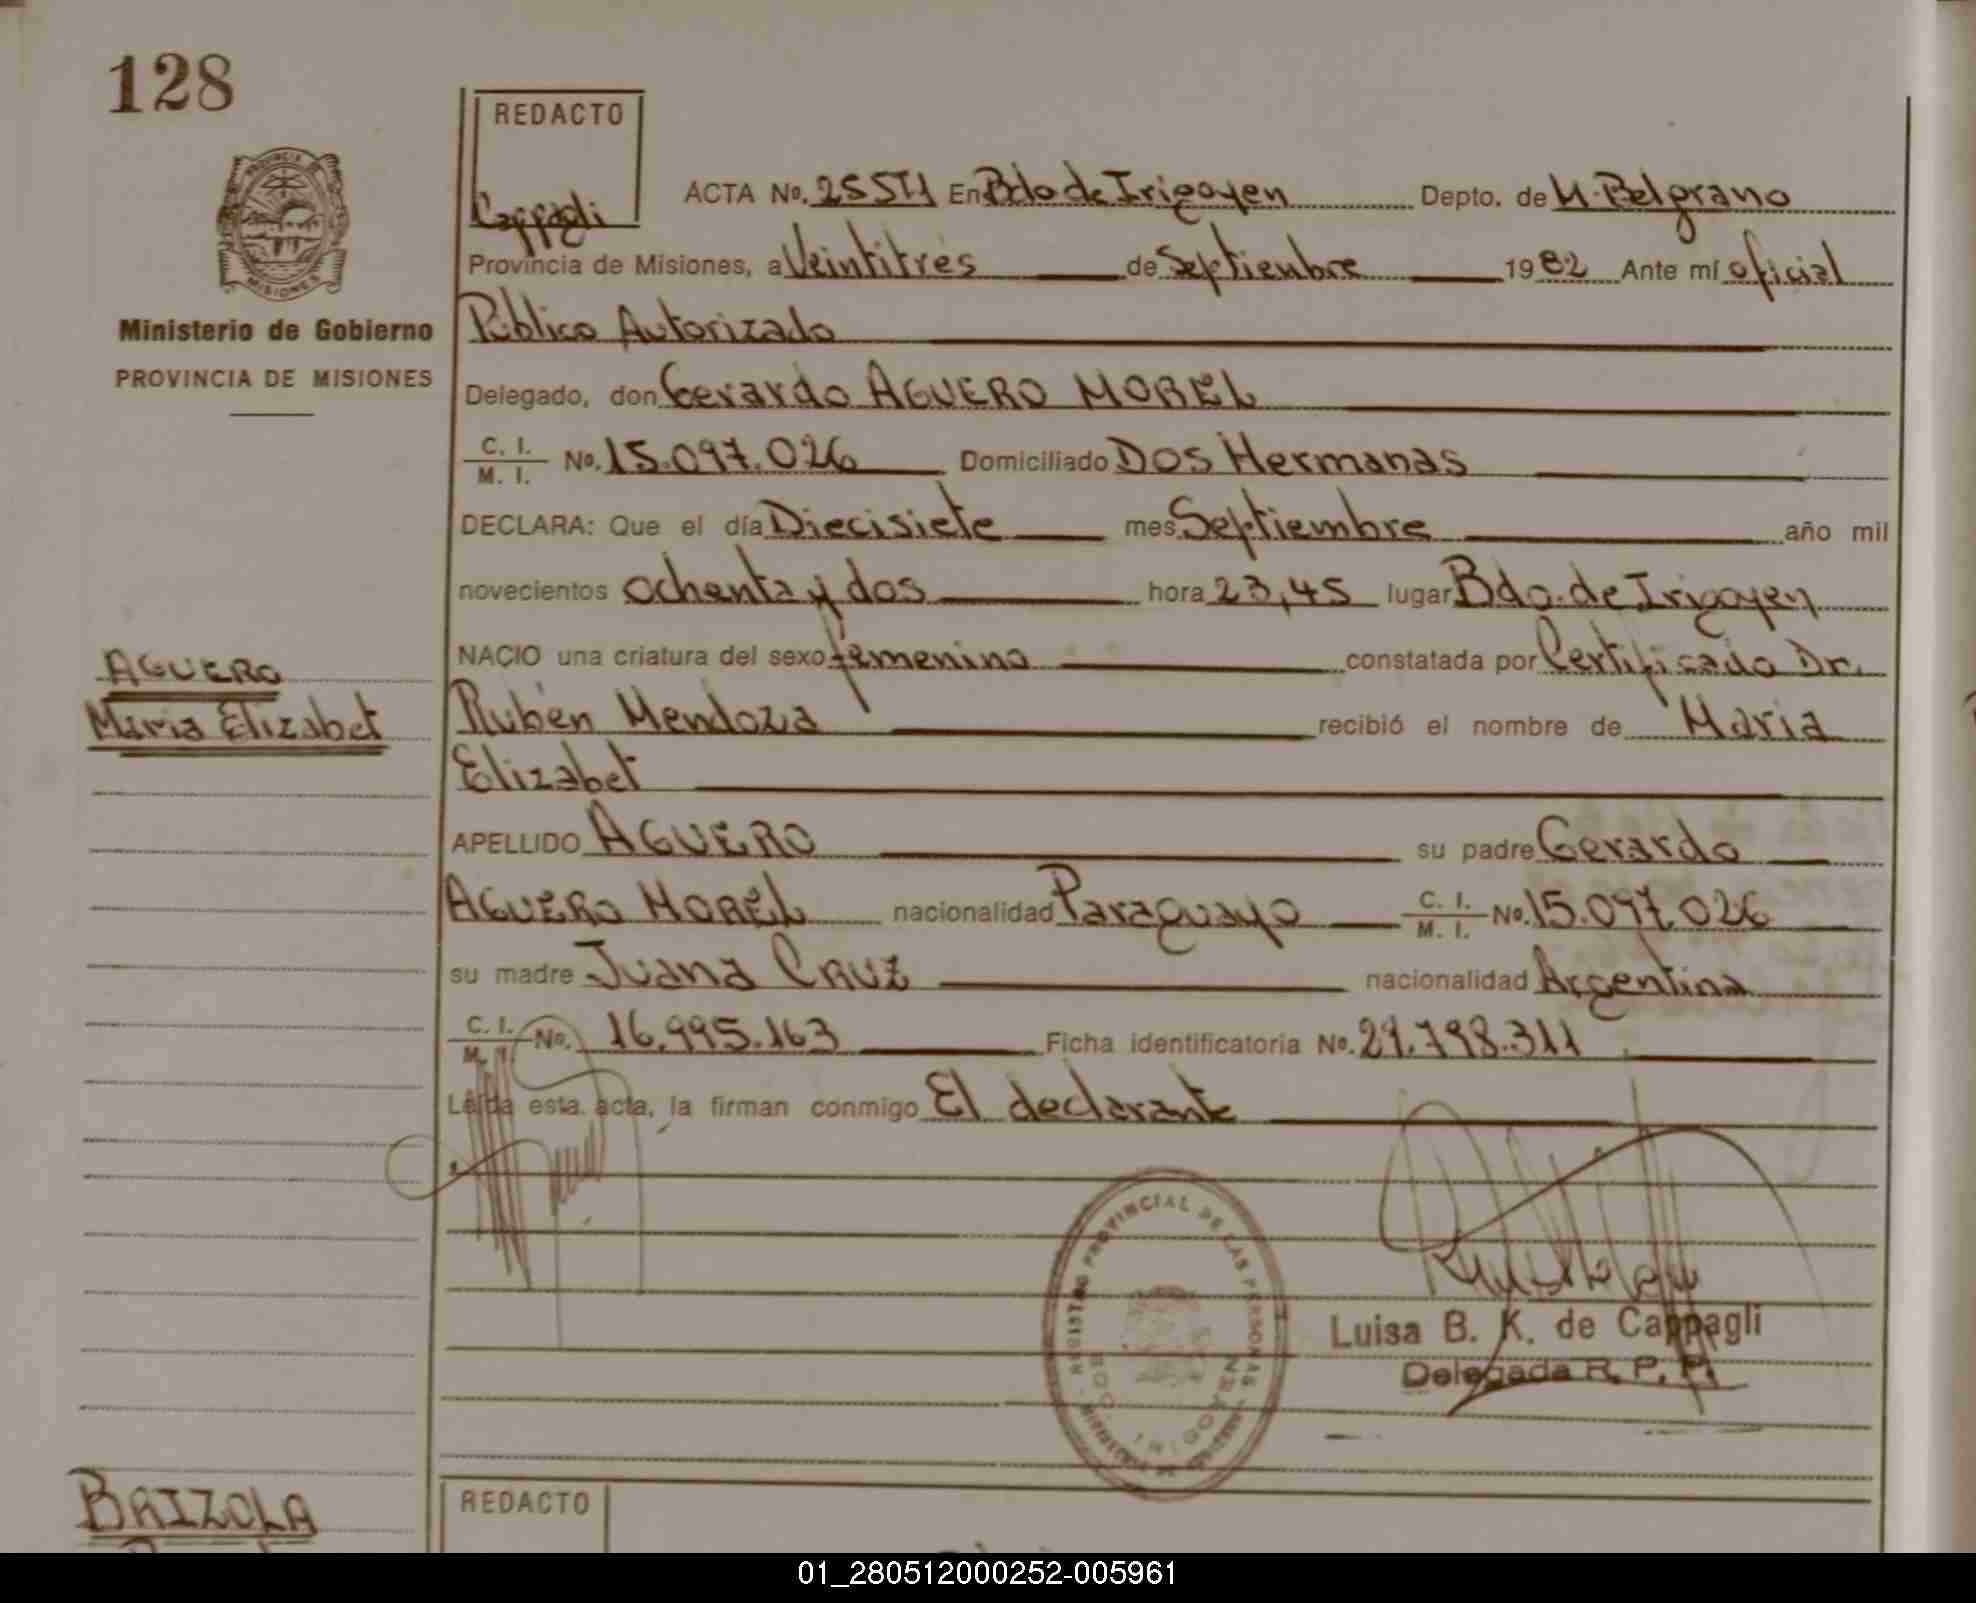 128
REDACTO
Cappagli
PROVINCIA DE MISIONES
Ministerio de Gobierno
PROVINCIA DE MISIONES
ACTA No. En Bdo de Irigoyen Depto. de M. Belgrano
Provincia de Misiones, a Veintitres de Septiembre 1982 Ante mí oficial
Público Autorizado
Delegado, don Gerardo AGUERO MOREL
C. I. / M. I. No. 15.097.026 Domiciliado Dos Hermanas
DECLARA: Que el día Diecisiete mes Septiembre año mil
novecientos ochenta y dos hora 23,45 lugar Bdo. de Irigoyen
NACIO una criatura del sexo femenino constatada por Certificado Dr.
Rubén Mendoza recibió el nombre de Maria
Elizabet
AGUERO
Maria Elizabet
APELLIDO AGUERO su padre Gerardo
AGUERO MOREL nacionalidad Paraguayo C. I. / M. I. No. 15.097.026
su madre Juana CRUZ nacionalidad Argentina
C. I. / M. I. No. 16.995.163 Ficha identificatoria No. 29.798.311
Leída esta acta, la firman conmigo El declarante
REGISTRO PROVINCIAL DE LAS PERSONAS
BDO. DE IRIGOYEN
Luisa B. K. de Cappagli
Delegada R. P. P.
BRIZOLA
REDACTO
01_280512000252-005961